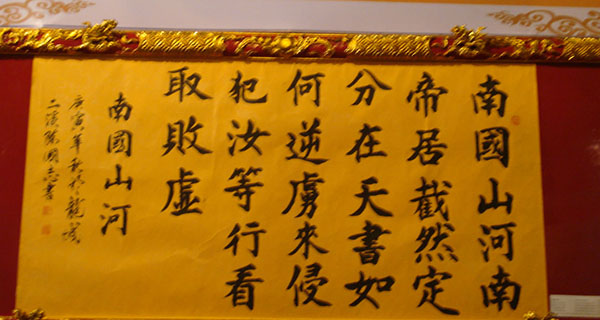 南國山河南
帝居截然定
分在天書如
何逆虜來侵
犯汝等行看
取敗虛
南國山河
庚寅年秋於龍城
陳國志書